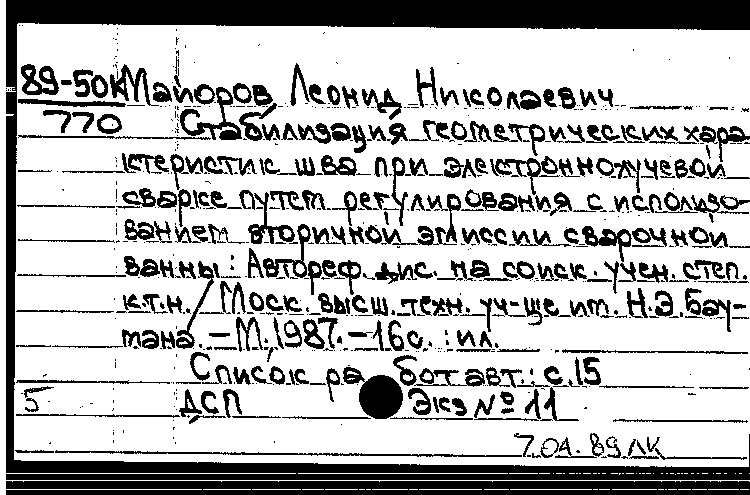 89-50К Майоров, Леонид Николаевич
770 Стабилизация геометрических хара-
ктеристик шва при электроннолучевой
сварке путем регулирования с использо-
ванием вторичной эмиссии сварочной
ванны: Автореф. дис. на соиск. учен. степ.
к.т.н. / Моск. высш. техн. уч-ще им. Н.Э.Бау-
мана. – М. 1987. – 16с. : ил.
Список работ авт.: с.15
5 ДСП Экз № 11
7.04.89 ЛК